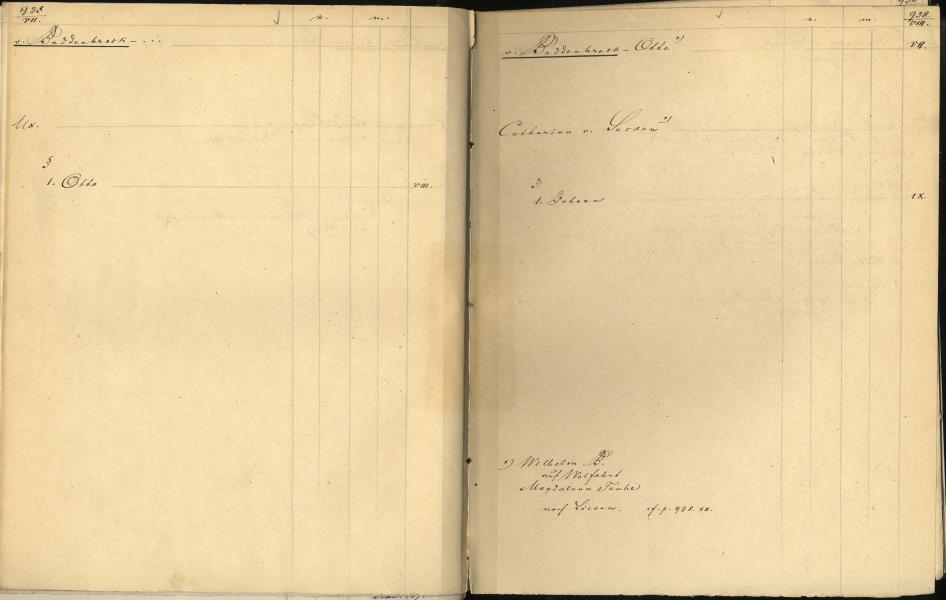 938
VII.
n. m.
v. Buddenbrock - ...
Ux.
§
1. Otto VIII.
n. m.
938.
VIII.
v. Buddenbrock - Otto *) VII.
Catharina v. Sacken *)
§
1. Johann IX.
*) Wilhelm B.
auf Wolfahrt
Magdalena Taube
nach Liesen. cf. p. 938. XII.